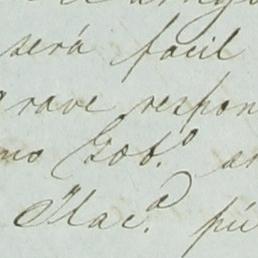 será facil
grave respon
mo Gob.º
Hac.ª pú